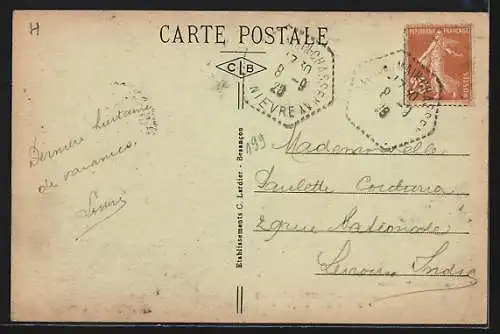 H
CARTE POSTALE
REPUBLIQUE FRANÇAISE
POSTES
17 30
8 -9
28
NIEVRE
CLB
Etablissements C. Lardier - Besançon
Dernière
de vacances.
199
Mademoiselle
Paulette
2 rue Nationale
Levroux Indre